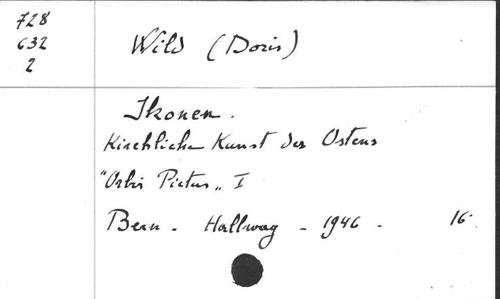 728
632
2
Wild (Doris)
Ikonen.
Kirchliche Kunst des Ostens
"Orbis Pictus" I
Bern - Hallwag - 1946 - 16°